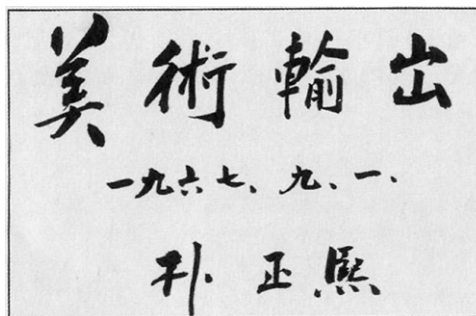 美術輸出
一九六七、九、一、
朴正熙